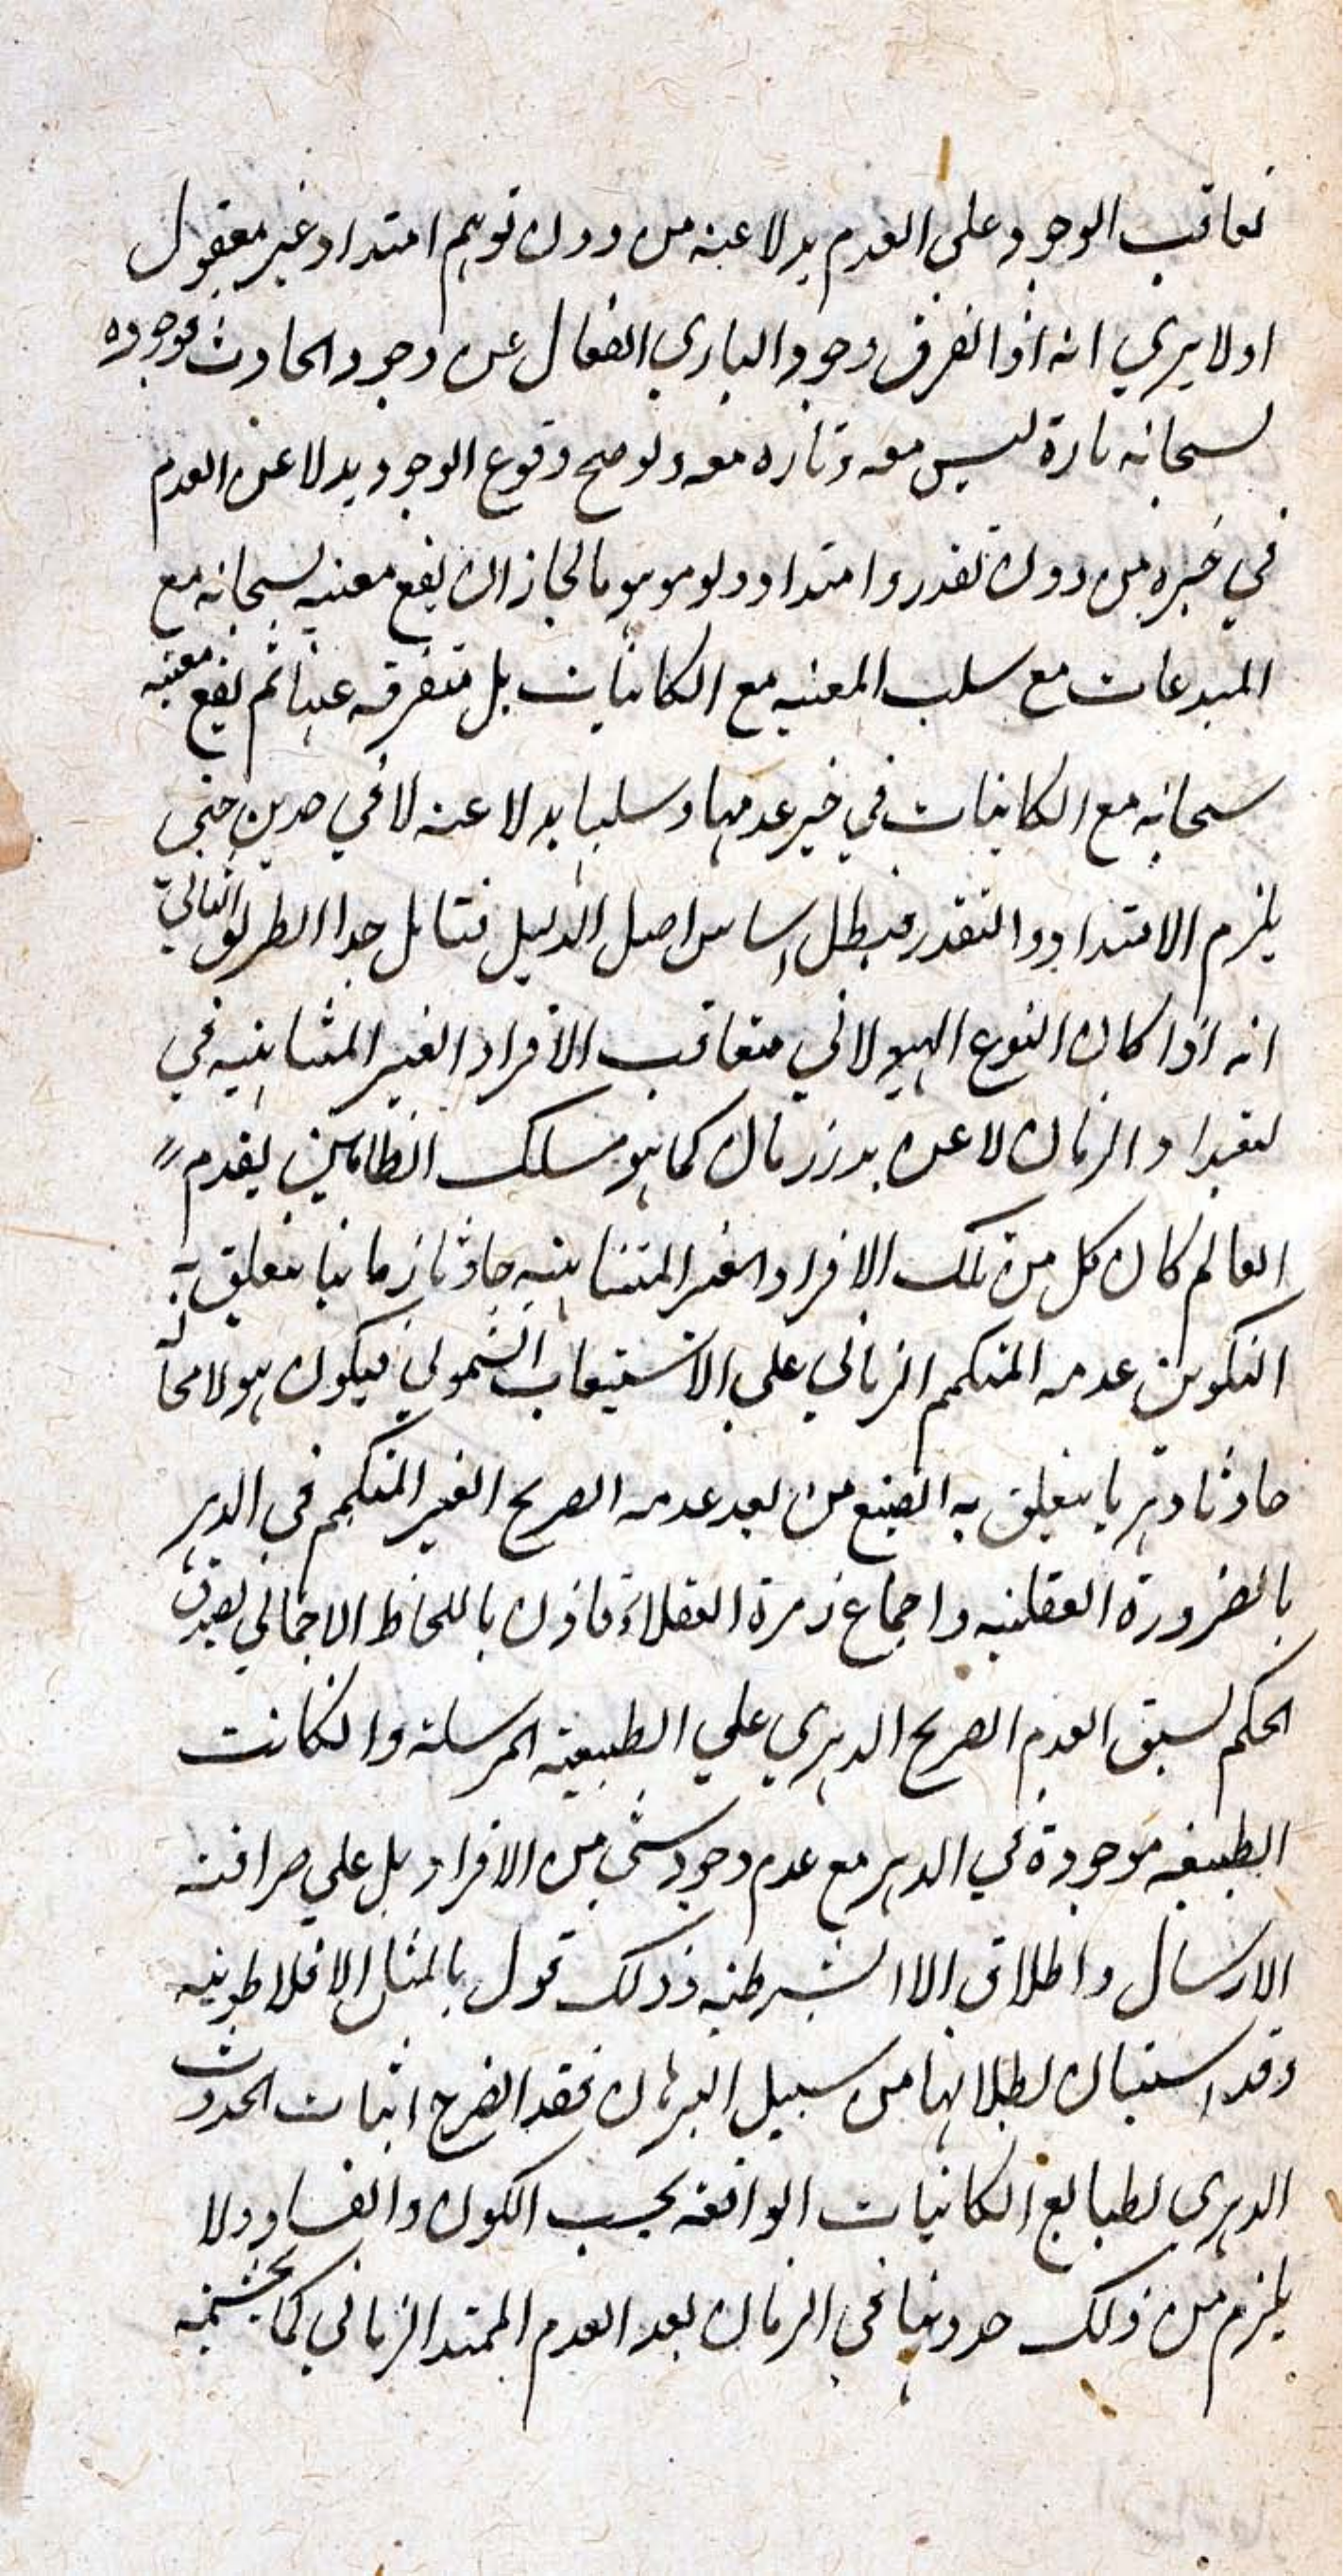 تعاقب الوجود على العدم بدلا عنه من دون توهم امتداد غير معقول
اولا يري انه اذا انفرق وجود الباري الفعال عن وجود الحادث فوجوده
سبحانه تارة ليس معه وتاره معه ولو صح وقوع الوجود بدلا عن العدم
في حيزه من دون تقدر وامتداد ولو موهوما لجاز ان يقع معيته سبحانه مع
المبدعات مع سلب المعيه مع الكاينات بل متفرقه عنها ثم يقع معيته
سبحانه مع الكاينات في حيز عدمها وسلبها بدلا عنه لا في حدين حتى
يلزم الامتداد والتقدر فيبطل اساس اصل الدليل فتامل جدا الطريق الثاني
انه اذا كان النوع الهيولاني متعاقب الافراد الغير المتناهيه في
امتداد الزمان لا عن بدو زمان كما هو مسلك الظانين بقدم
العالم كان كل من تلك الافراد الغير المتناهيه حادثا زمانيا يتعلق به
التكوين عدمه المتكمم الزماني علي الاستيعاب الشمولي فيكون هو لا محالة
حادثا دهريا يتعلق به الصنع من بعد عدمه الصريح الغير المتكمم في الدهر
بالضرورة العقليه واجماع زمرة العقلاء فاذن باللحاظ الاجمالي يصدق
الحكم لسبق العدم الصريح الدهري علي الطبيعة المرسلة والا كانت
الطبيعه موجودة في الدهر مع عدم وجود شي من الافراد بل علي صرافته
الارسال واطلاق الا الشرطيه وذلك قول بالمثل الافلاطونيه
وقد استبان بطلانها من سبيل البرهان فقد انصرح اثبات الحدوث
الدهري لطبايع الكاينات الواقعه بحسب الكون والفساد ولا
يلزم من ذلك حدوثها في الزمان بعد العدم الممتد الزماني كما